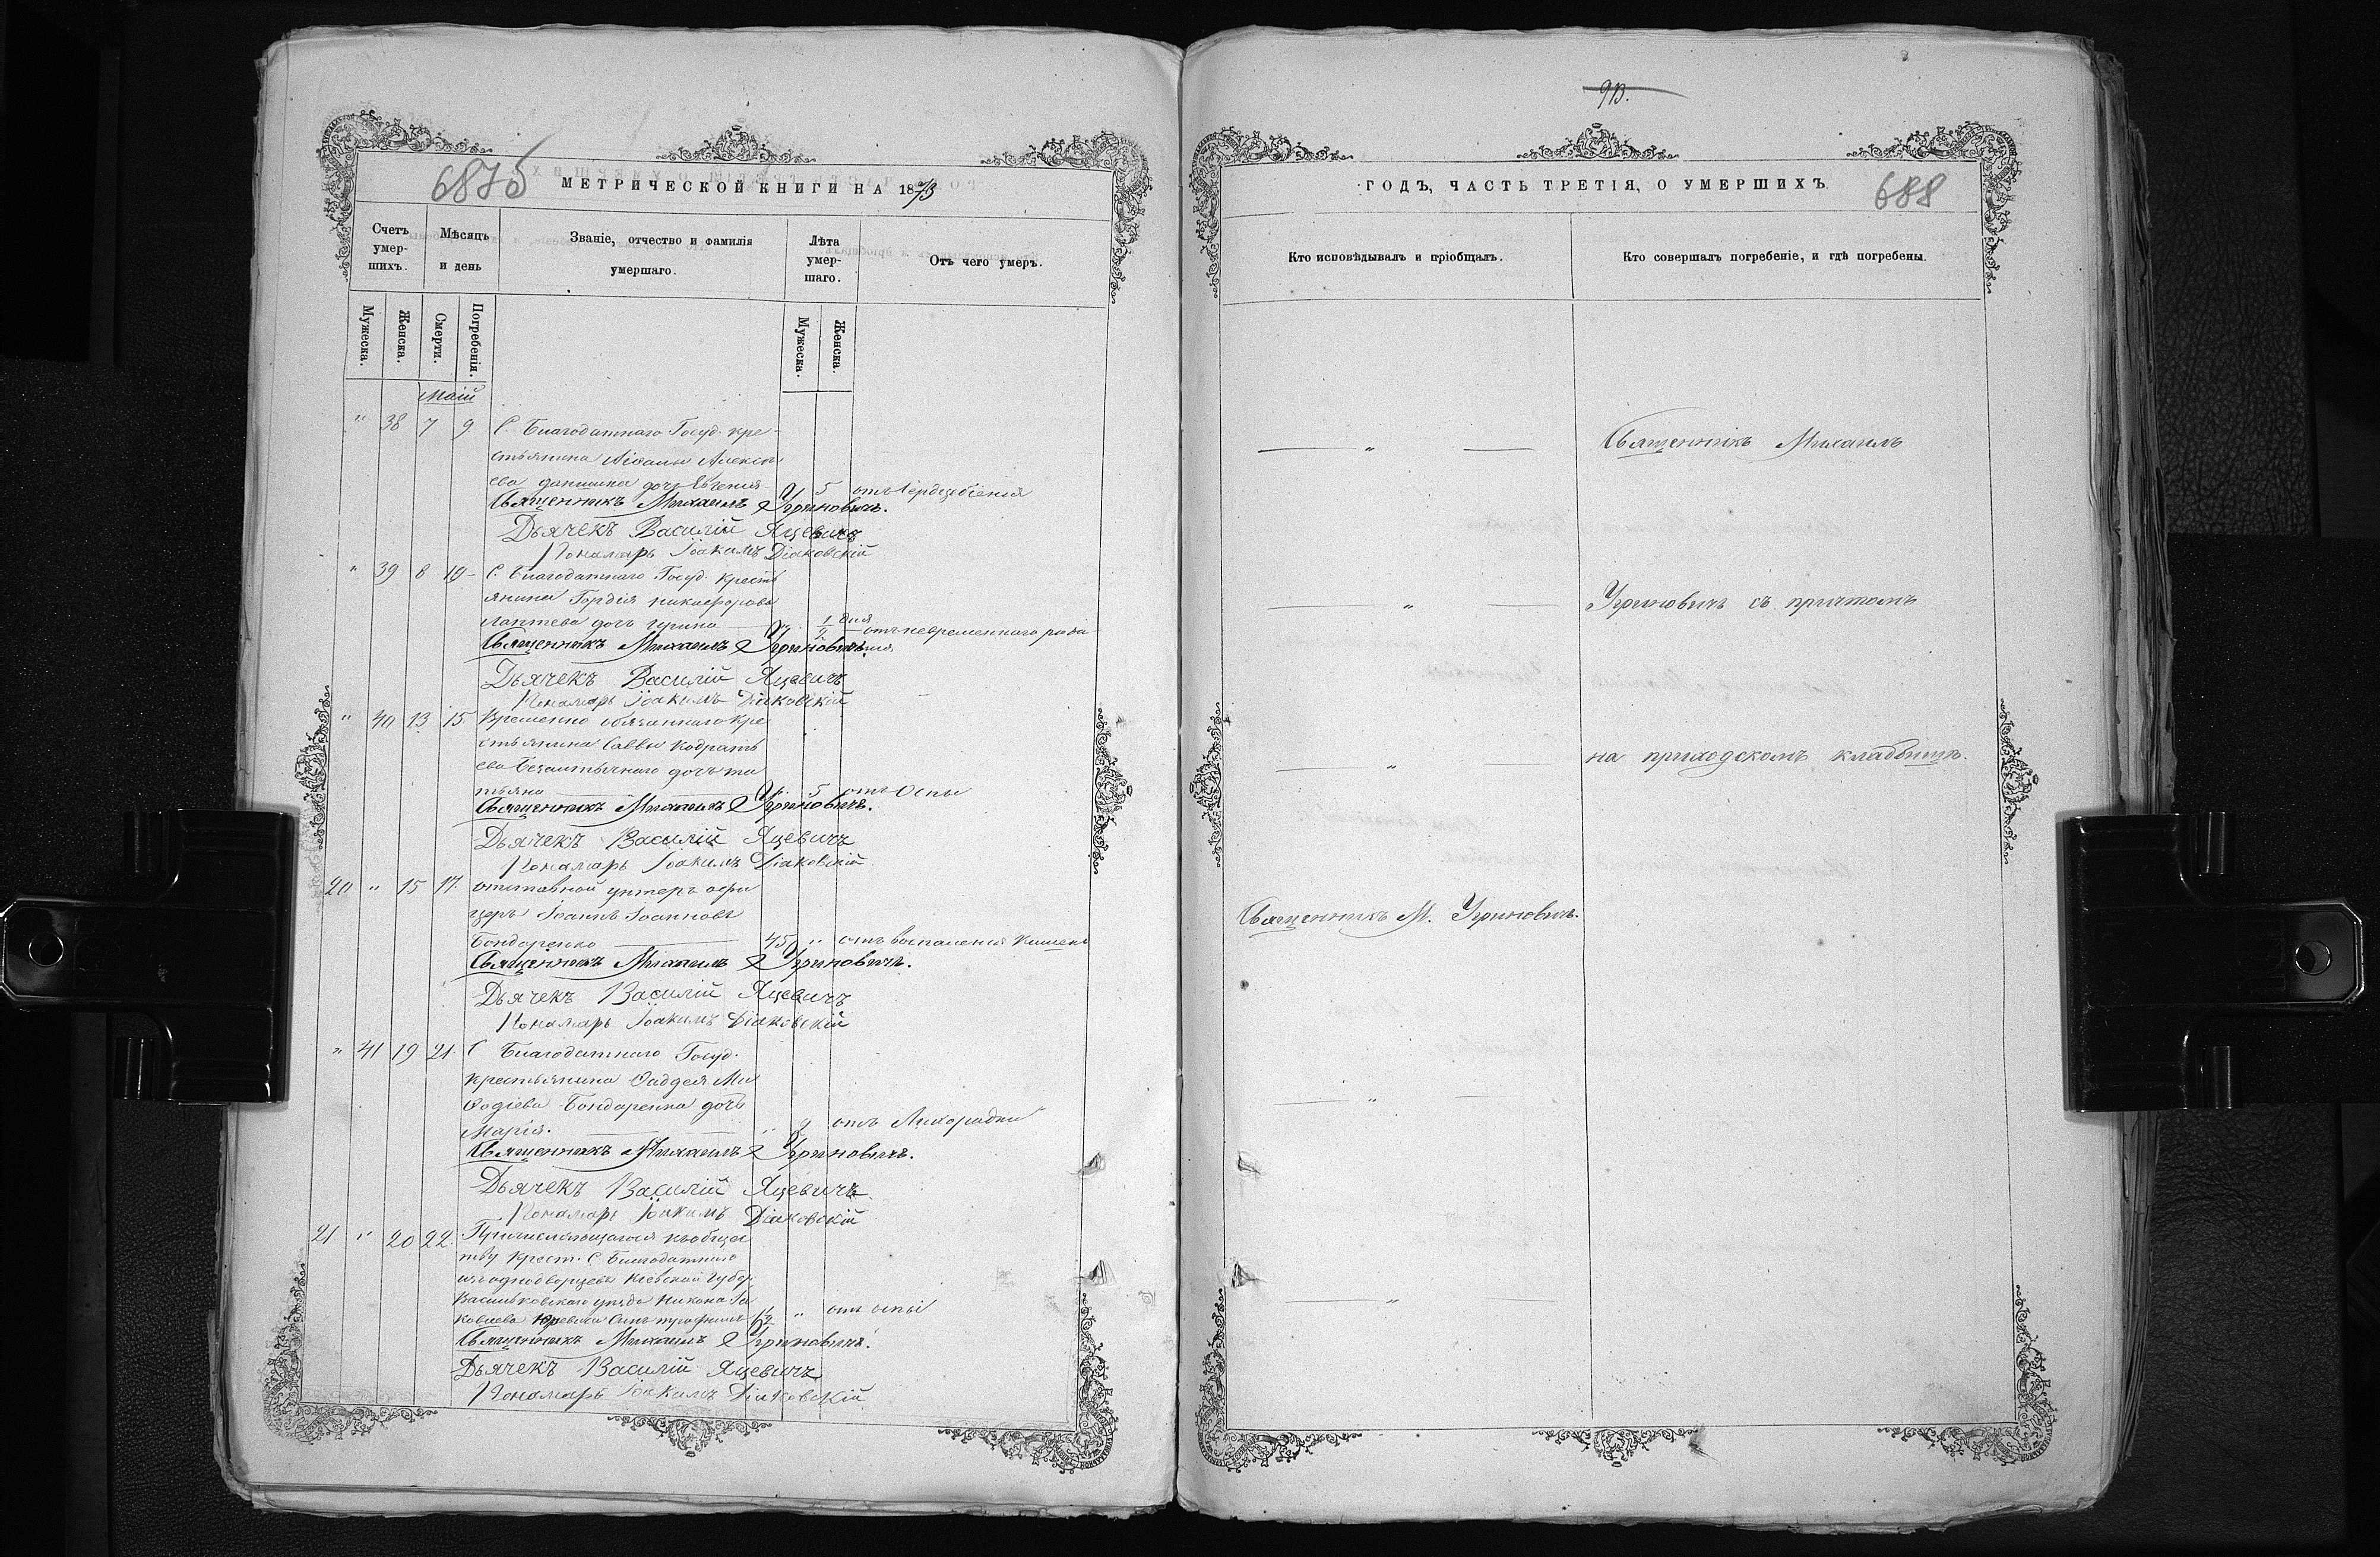 687б МЕТРИЧЕСКОЙ КНИГИ НА 1873
Счетъ умершихъ.
Мѣсяцъ и день
Званіе, отчество и фамилія умершаго.
Лѣта умершаго.
Отъ чего умеръ.
Мужеска. Женска. Смерти. Погребенія. Мужеска. Женска.
Маій
" 38 7 9 С. Благодатнаго Госуд. кре-
стьянина
дочь Евгенія " 5 отъ
Священникъ Михаилъ Угриновичъ.
Дьячекъ Василій Яцевичъ
Пономарь Іоакимъ Діаковскій
" 39 8 10 С. Благодатнаго Госуд. кресть
янина Гордія Никифорова
Лаптева дочь Ирина " 1/2 дня отъ невременнаго рожде-
нія.
Священникъ Михаилъ Угриновичъ.
Дьячекъ Василій Яцевичъ
Пономарь Іоакимъ Діаковскій
" 40 13 15 Временно обязаннаго кре
стьянина Саввы Кодрать
ева дочь та
тьяна " 5 отъ Оспы
Священникъ Михаилъ Угриновичъ.
Дьячекъ Василій Яцевичъ
Пономарь Іоакимъ Діаковскій
20 " 15 17. отставной унтеръ офи
церъ Іоаннъ Іоанновъ
Бондаренко 45 " отъ воспаленія кишекъ
Священникъ Михаилъ Угриновичъ.
Дьячекъ Василій Яцевичъ
Пономарь Іоакимъ Діаковскій
" 41 19 21. С Благодатнаго Госуд.
крестьянина Фаддея Ме
ѳодіева Бондаренка дочь
Марія. " 2 отъ Лихорадки
Священникъ Михаилъ Угриновичъ.
Дьячекъ Василій Яцевичъ
Пономарь Іоакимъ Діаковскій
21 " 20 22. Причисляющагося къ общес
тву крест. С Благодатнаго
изъ однодворцевъ Кіевской Губер.
Васильковскаго уѣзда Никона Іа
ковлева Сынъ трофимъ 1/2 " отъ оспы
Священникъ Михаилъ Угриновичъ.
Дьячекъ Василій Яцевичъ
Пономарь Іоакимъ Діаковскій
ГОДЪ, ЧАСТЬ ТРЕТІЯ, О УМЕРШИХЪ 688
Кто исповѣдывалъ и пріобщалъ.
Кто совершалъ погребеніе, и гдѣ погребены.
" Священникъ Михаилъ
" Угриновичъ съ причтомъ
" на приходскомъ кладбищѣ.
Священникъ М. Угриновичъ.
"
"